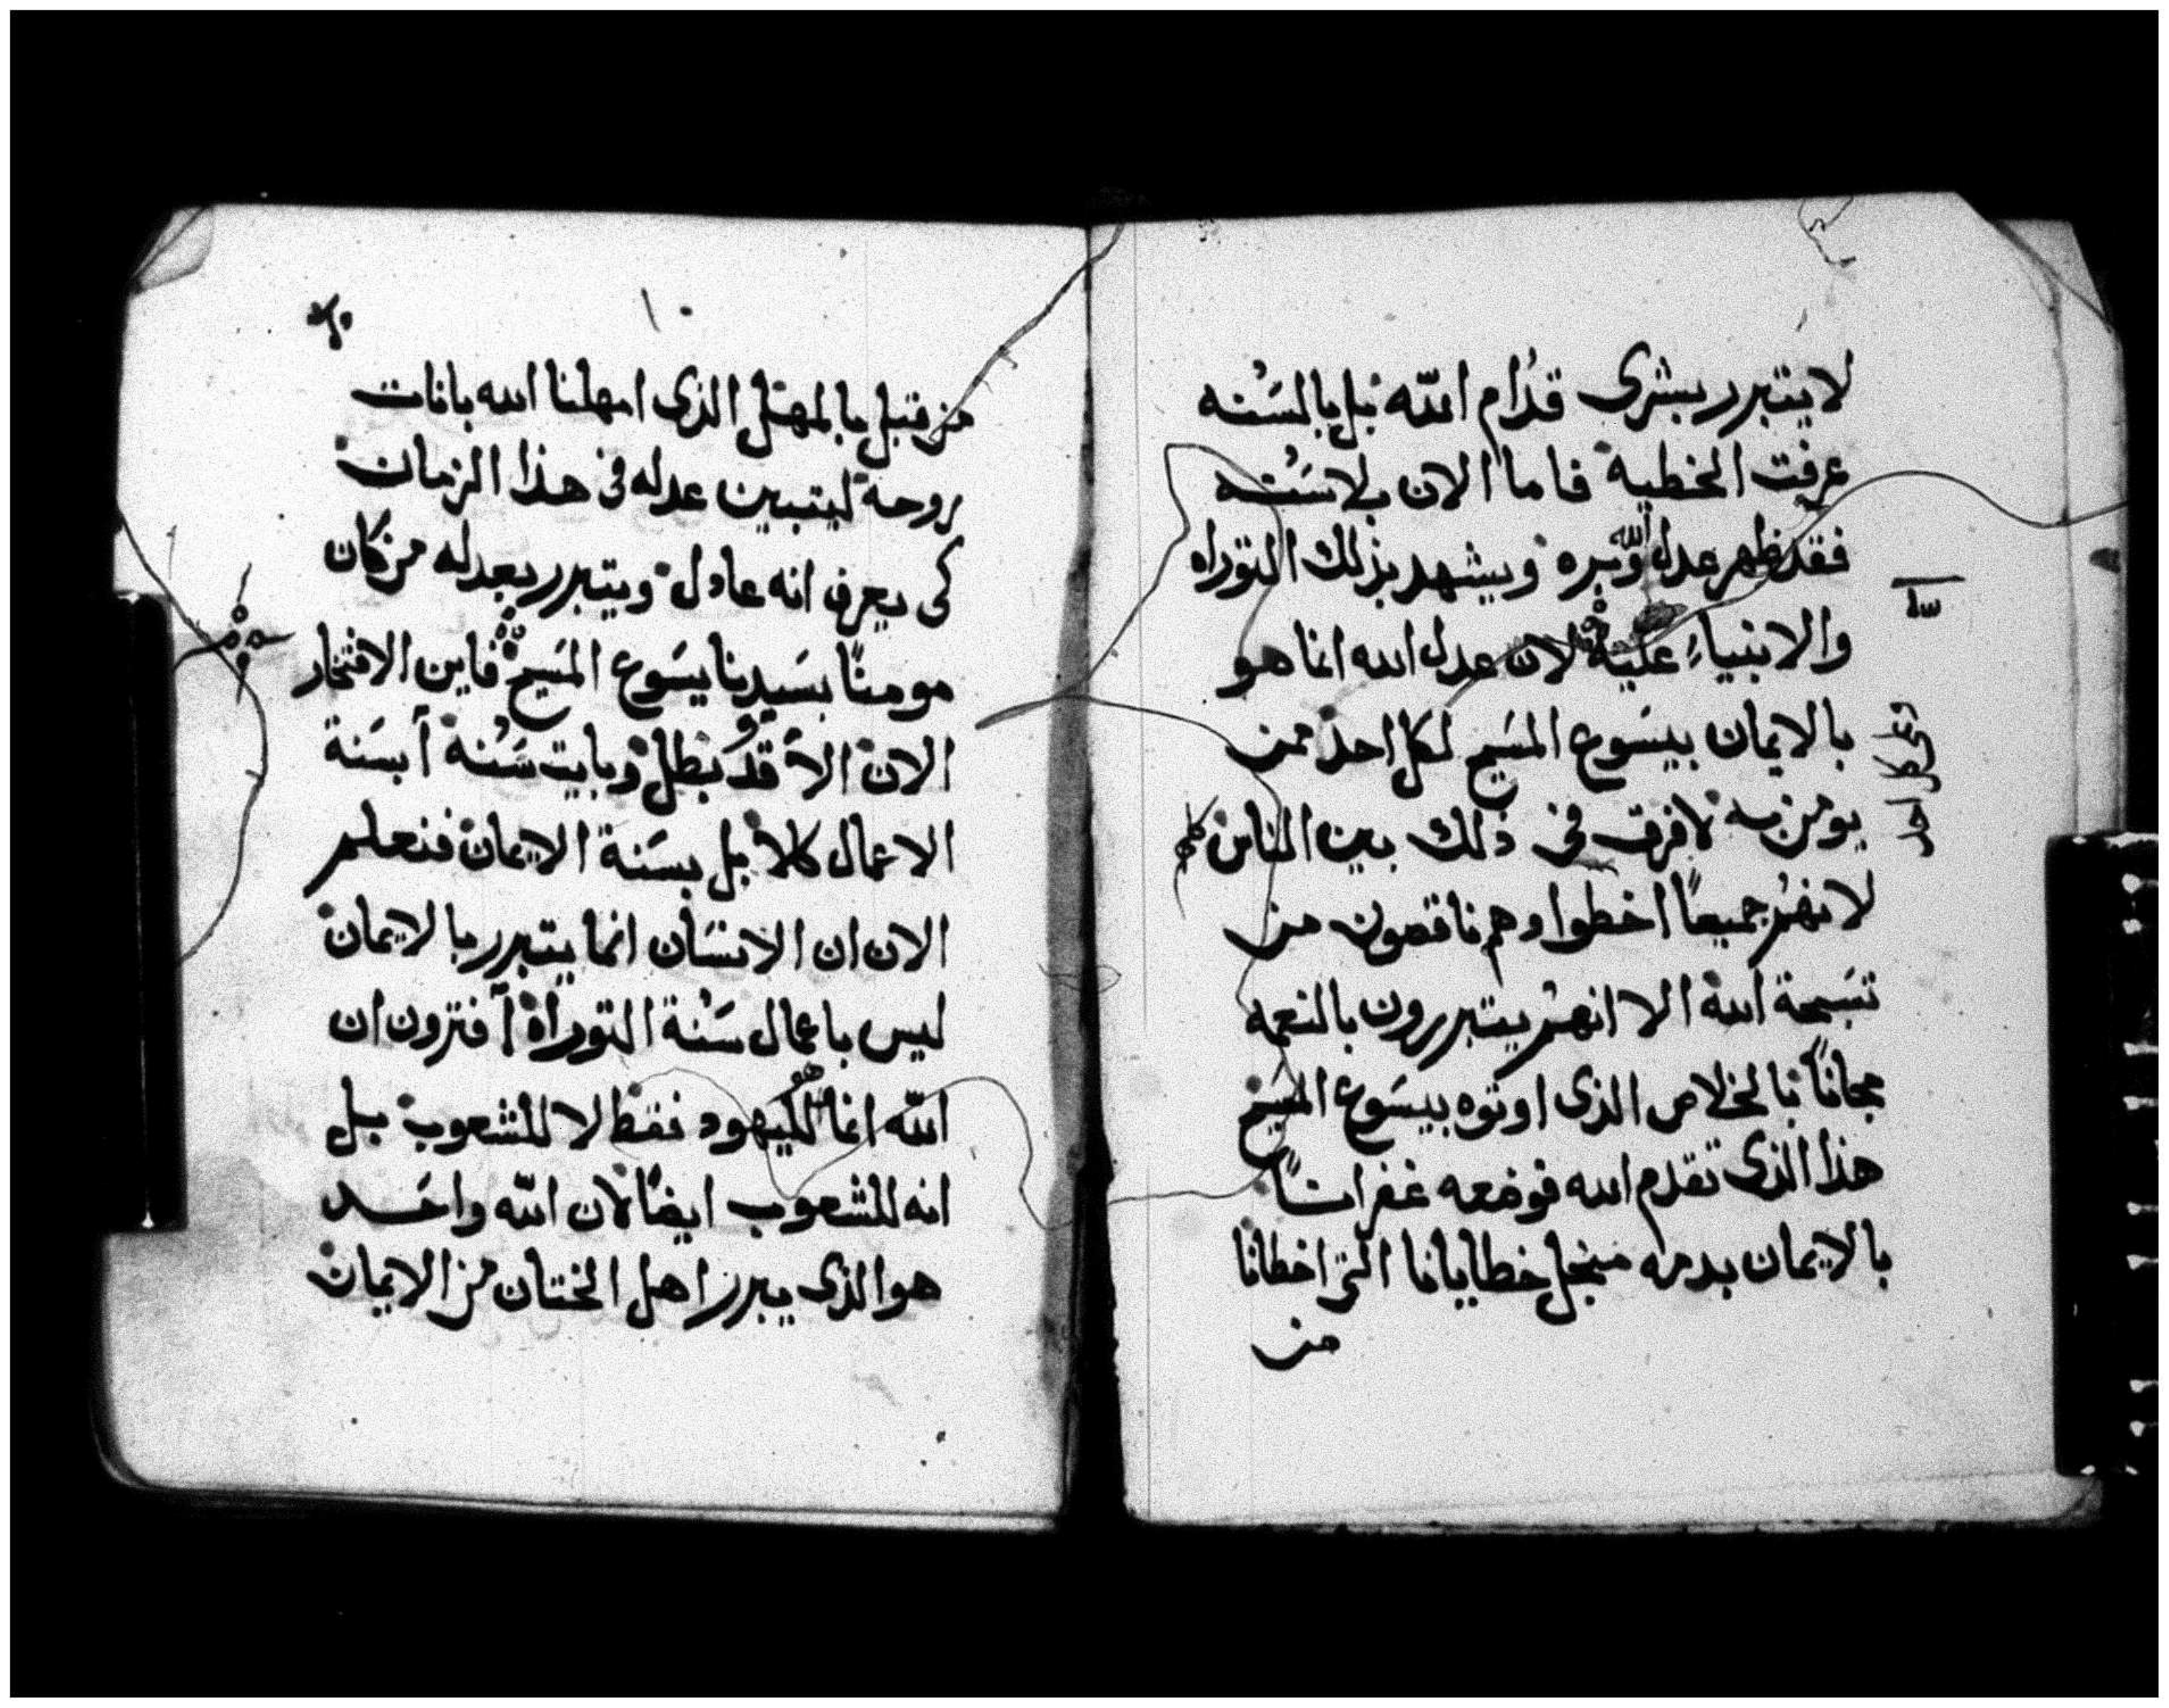 لا يتبرر بشرى قدام الله بل بالسنه
عرفت الخطية فاما الان بلا سنه
فقد ظهر عدل الله وبره ويشهد بذلك التوراه
والانبياء عليه لان عدل الله انما هو
بالايمان بيسوع المسيح لكل احد ممن
وعلى كل احد
يومن به لا فرق فى ذلك بين الناس كلهم
لانهم جميعًا اخطوا وهم ناقصون من
تسبحة الله الا انهم يتبررون بالنعمه
مجانًا بالخلاص الذى اوتوه بيسوع المسيح
هذا الذى تقدم الله فوضعه غفرانًا
بالايمان بدمه منجل خطايانا التى اخطانا
من
١٠
من قبل بالمهل الذى امهلنا الله باناة
روحه ليتبين عدله فى هذا الزمان
كى يعرف انه عادل ويتبرر بعدله من كان
مومنًا بسيدنا يسوع المسيح فاين الافتخار
الان الا وقد بطل وبايت سنه آبسنة
الاعمال كلا بل بسنة الايمان فنعلم
الان ان الانسان انما يتبرر بالايمان
ليس باعمال سنة التوراة أفترون ان
الله انما هو لليهود فقط لا للشعوب بل
انه للشعوب ايضًا لان الله واحد
هو الذى يبرر اهل الختان من الايمان